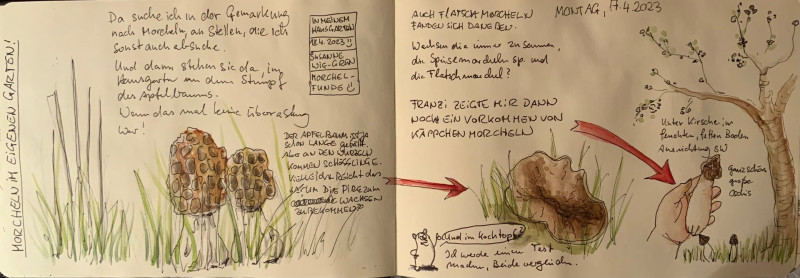 MORCHELN IM EIGENEN GARTEN!
Da suche ich in der Gemarkung
nach Morcheln, an Stellen, die ich
sonst auch absuche.
Und dann stehen sie da, im
Hausgarten an dem Stumpf
des Apfelbaums.
Wenn das mal keine Überraschung
war!
IN MEINEM
HAUSGARTEN
18.4.2023!!
SUSANNE
MORCHEL-
FUNDE
DER APFELBAUM IST JA
SCHON LANGE
ABER AN DEN WURZELN
KOMMEN SCHÖSSLINGE.
das
WARUM DIE PILZE ZUM
WACHSEN
AUCH FLATSCHMORCHELN
FANDEN SICH DANEBEN.
Wachsen die immer zusammen,
die Speisemorcheln sp. und
die Flatschmorchel?
FRANZI ZEIGTE MIR DANN
NOCH EIN VORKOMMEN VON
KÄPPCHENMORCHELN
MONTAG, 17.4.2023
Unter Kirsche im
feuchten, fetten Boden
Ausrichtung SW
Ganz schön
große
Und im Kochtopf?
Ich werde einen Test
machen, Beide vergleichen.